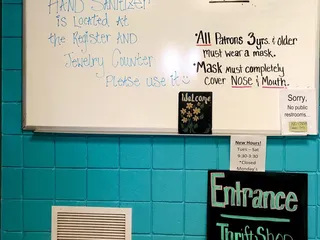 HAND SANITIZER
is Located at
the Register AND
Jewelry Counter
Please use it
*All Patrons 3 yrs. & older
must wear a mask.
*Mask must completely
cover Nose & Mouth.
Welcome
Sorry,
No public
restrooms.
New Hours!
Tues - Sat
9:30-5:30
*Closed
Monday's
Entrance
Thrift Shop